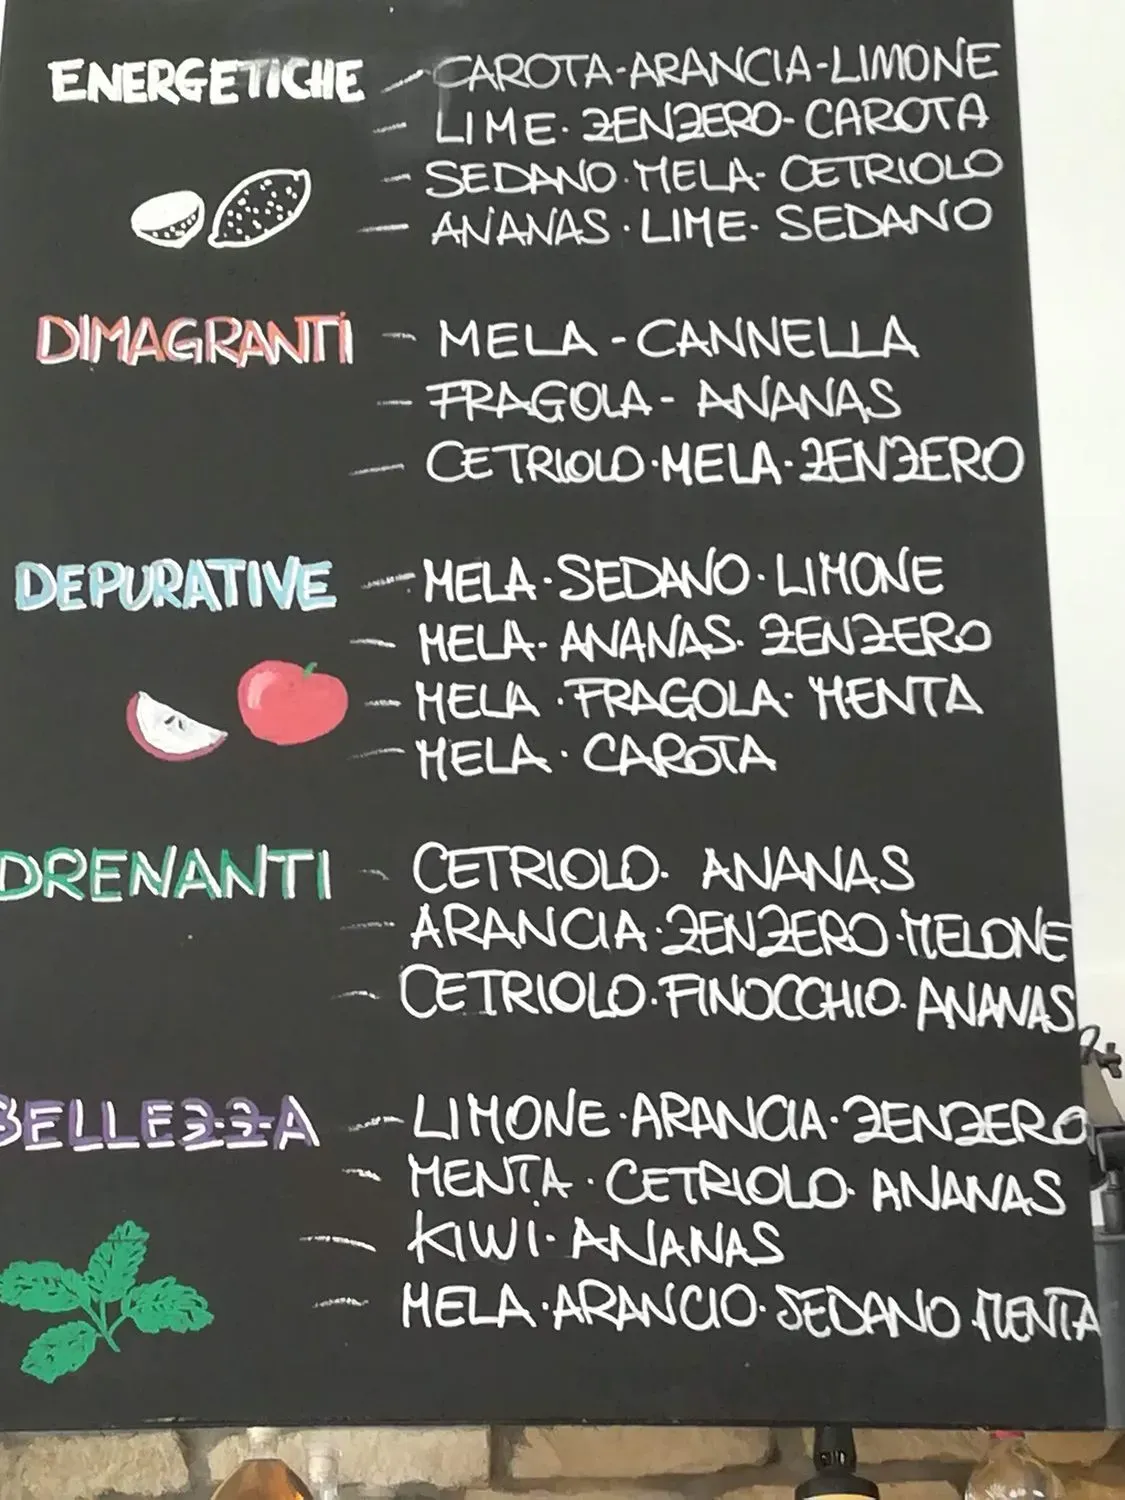 ENERGETICHE - CAROTA-ARANCIA-LIMONE
- LIME· ZENZERO- CAROTA
- SEDANO·MELA- CETRIOLO
- ANANAS·LIME· SEDANO
DIMAGRANTI - MELA - CANNELLA
- FRAGOLA - ANANAS
- CETRIOLO·MELA·ZENZERO
DEPURATIVE - MELA·SEDANO·LIMONE
- MELA· ANANAS· ZENZERO
- MELA ·FRAGOLA· MENTA
- MELA · CAROTA
DRENANTI - CETRIOLO· ANANAS
- ARANCIA·ZENZERO·MELONE
- CETRIOLO·FINOCCHIO·ANANAS
BELLEZZA - LIMONE·ARANCIA·ZENZERO
- MENTA·CETRIOLO·ANANAS
- KIWI·ANANAS
- MELA·ARANCIO·SEDANO MENTA